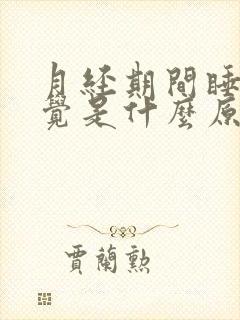 月经期間睡
覺是什麼原
賈蘭勲